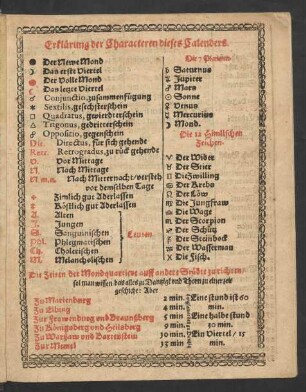 Erklärung der Characteren dieses Calenders.
● Der Newe Mond
☽ Das erste Viertel
● Der Volle Mond
☾ Das letzte Viertel
☌ Conjunctio, zusammenfügung
⚹ Sextilis, gesechsterschein
□ Quadratus, gevierdterschein
△ Trigonus, gedritterschein
☍ Oppositio, gegenschein
Dir. Directus, für sich gehende
Retr. Retrogradus, zu rück gehende
V. Vor Mittage
N. Nach Mittage
N m.n. Nach Mitternacht/versteh
vor demselben Tage
Zimlich gut Aderlassen
Köstlich gut Aderlassen
A. Alten
J. Jungen
S. Sanguinischen
Phl. Phlegmatischen
Ch. Cholerischen
M. Melancholischen
Leuten
Die 7 Planeten.
♄ Saturnus
♃ Jupiter
♂ Mars
☉ Sonne
♀ Venus
☿ Mercurius
☽ Mond.
Die 12 Himlischen
Zeichen.
♈ Der Wider
♉ Der Stier
♊ Die Zwilling
♋ Der Krebs
♌ Der Löw
♍ Die Jungfraw
♎ Die Wage
♏ Der Scorpion
♐ Der Schütz
♑ Der Steinbock
♒ Der Wasserman
♓ Die Fisch.
Die Zeiten der Mondquartiere auff andere Städte zurichten,
sol man wissen das alles zu Dantzigk und Thorn zu einer zeit
geschicht: Aber
Zu Marienburg 2 min.
Zu Elbing 4 min.
Zu Frawenburg und Braunßberg 5 min.
Zu Königsberg und Heilsberg 9 min.
Zu Warzaw und Bartenstein 10 min.
Zur Mimel 15 min
Eine stund ist 60
min.
Eine halbe stund
30 min.
Ein Viertel / 15
min.